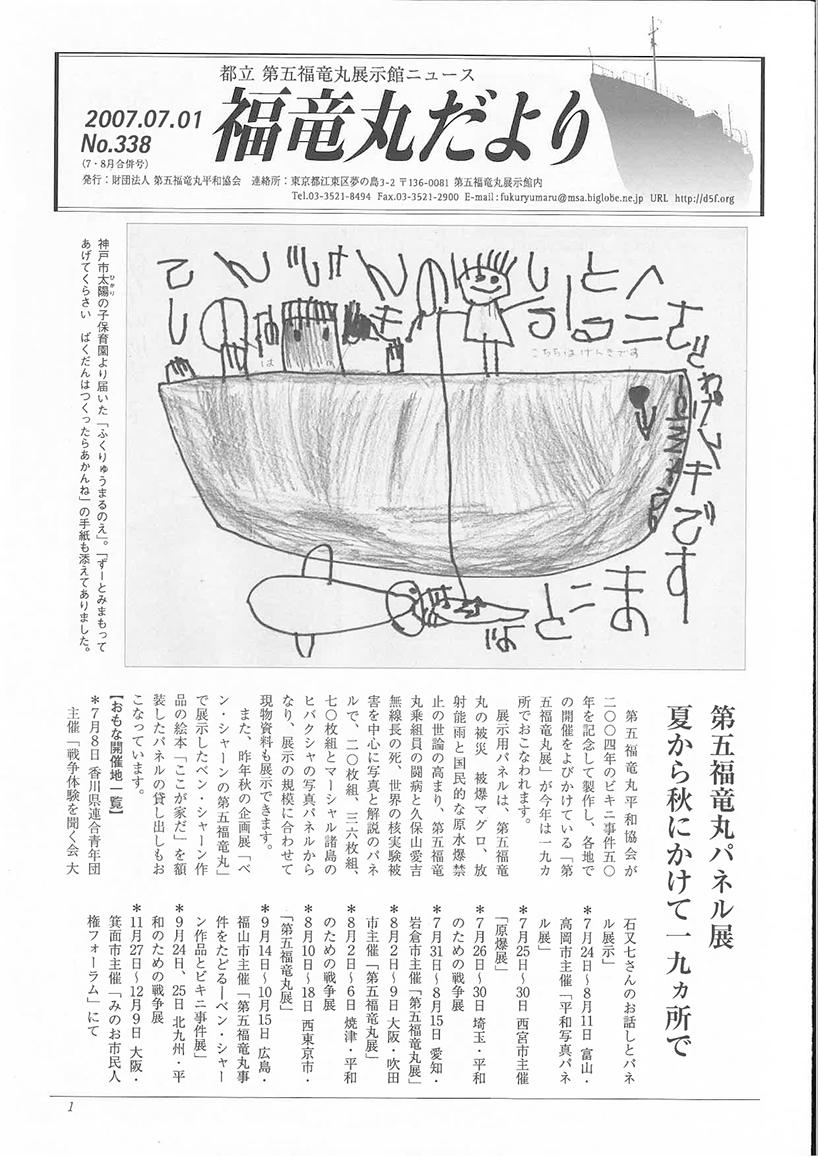 都立 第五福竜丸展示館ニュース
福竜丸だより
2007.07.01
No.338
(7・8月合併号)
発行：財団法人 第五福竜丸平和協会　連絡所：東京都江東区夢の島3-2 〒136-0081 第五福竜丸展示館内
Tel.03-3521-8494 Fax.03-3521-2900 E-mail:fukuryumaru@msa.biglobe.ne.jp URL http://d5f.org
こちらはげんきです
神戸市太陽の子保育園より届いた「ふくりゅうまるのえ」。「ずーとみまもって
ひかり
あげてくらさい　ばくだんはつくったらあかんね」の手紙も添えてありました。
第五福竜丸パネル展
夏から秋にかけて一九ヵ所で
第五福竜丸平和協会が
二〇〇四年のビキニ事件五〇
年を記念して製作し、各地で
の開催をよびかけている「第
五福竜丸展」が今年は一九ヵ
所でおこなわれます。
展示用パネルは、第五福竜
丸の被災　被爆マグロ、放
射能雨と国民的な原水爆禁
止の世論の高まり、第五福竜
丸乗組員の闘病と久保山愛吉
無線長の死、世界の核実験被
害を中心に写真と解説のパネ
ルで、二〇枚組、三六枚組、
七〇枚組とマーシャル諸島の
ヒバクシャの写真パネルから
なり、展示の規模に合わせて
現物資料も展示できます。
また、昨年秋の企画展「ベ
ン・シャーンの第五福竜丸」
で展示したベン・シャーン作
品の絵本「ここが家だ」を額
装したパネルの貸し出しもお
こなっています。
【おもな開催地一覧】
＊7月8日 香川県連合青年団
主催「戦争体験を聞く会 大
石又七さんのお話しとパネ
ル展示」
＊7月24日～8月11日 富山・
高岡市主催「平和写真パネ
ル展」
＊7月25日～30日 西宮市主催
「原爆展」
＊7月26日～30日 埼玉・平和
のための戦争展
＊7月31日～8月15日 愛知・
岩倉市主催「第五福竜丸展」
＊8月2日～9日 大阪・吹田
市主催「第五福竜丸展」
＊8月2日～6日 焼津・平和
のための戦争展
＊8月10日～18日 西東京市・
「第五福竜丸展」
＊9月14日～10月15日 広島・
福山市主催「第五福竜丸事
件をたどるーベン・シャー
ン作品とビキニ事件展」
＊9月24日、25日 北九州・平
和のための戦争展
＊11月27日～12月9日 大阪・
箕面市主催「みのお市民人
権フォーラム」にて
1